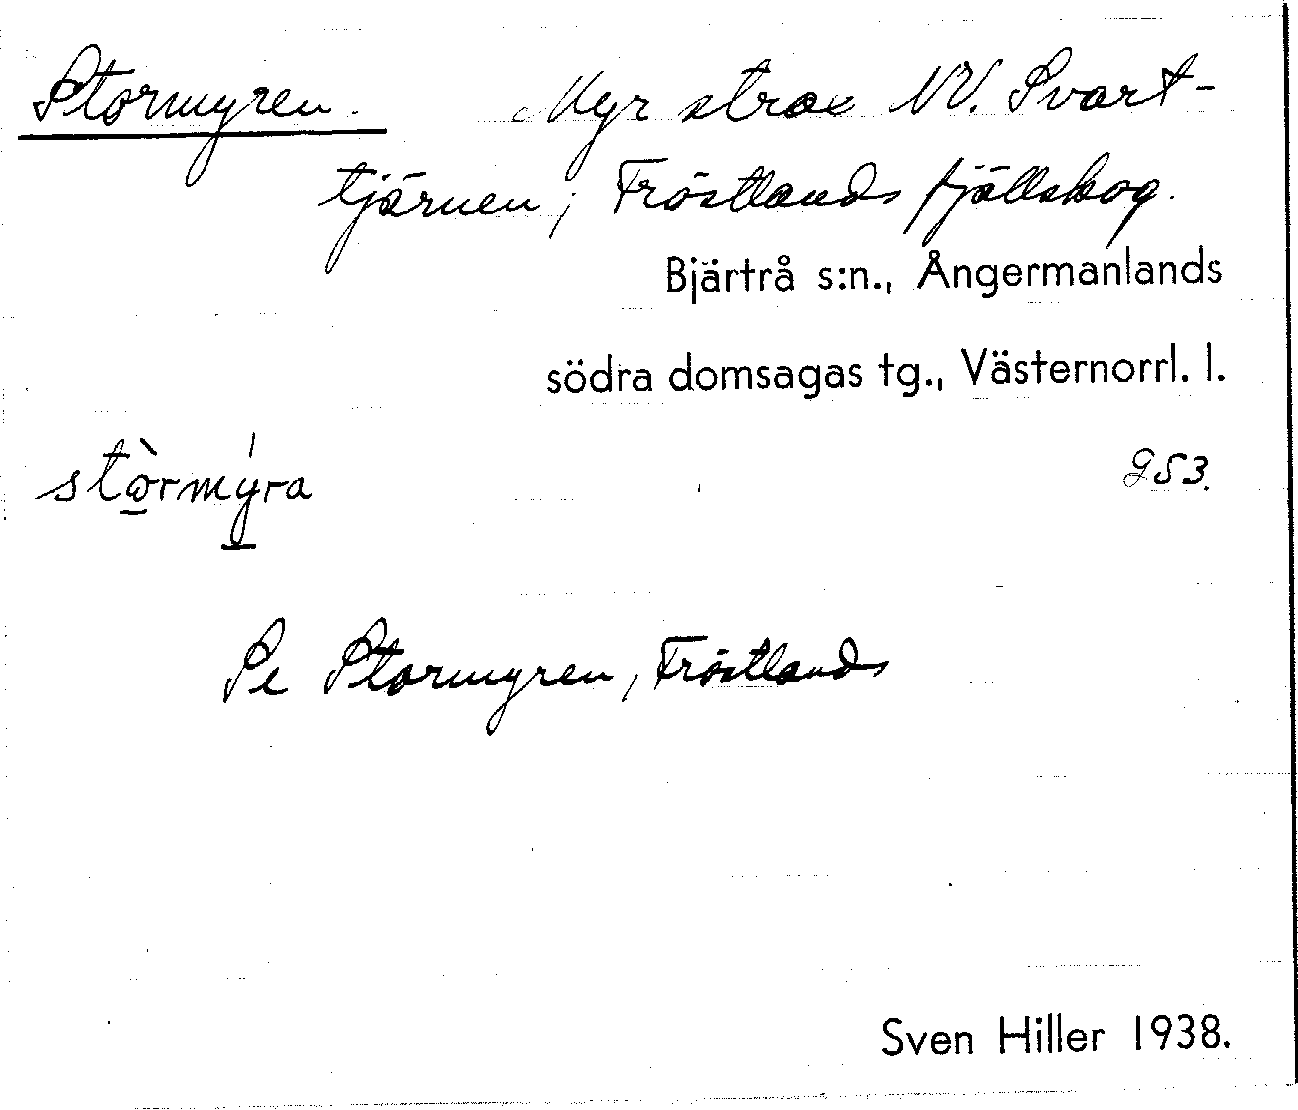 Stormyren. Myr strax NV. Svart-
tjärnen, Fröstlands fjällskog.
Bjärtrå s:n., Ångermanlands
södra domsagas tg., Västernorrl. l.
stòrmy̍ra 253.
Se Stormyren, Fröstlands
Sven Hiller 1938.